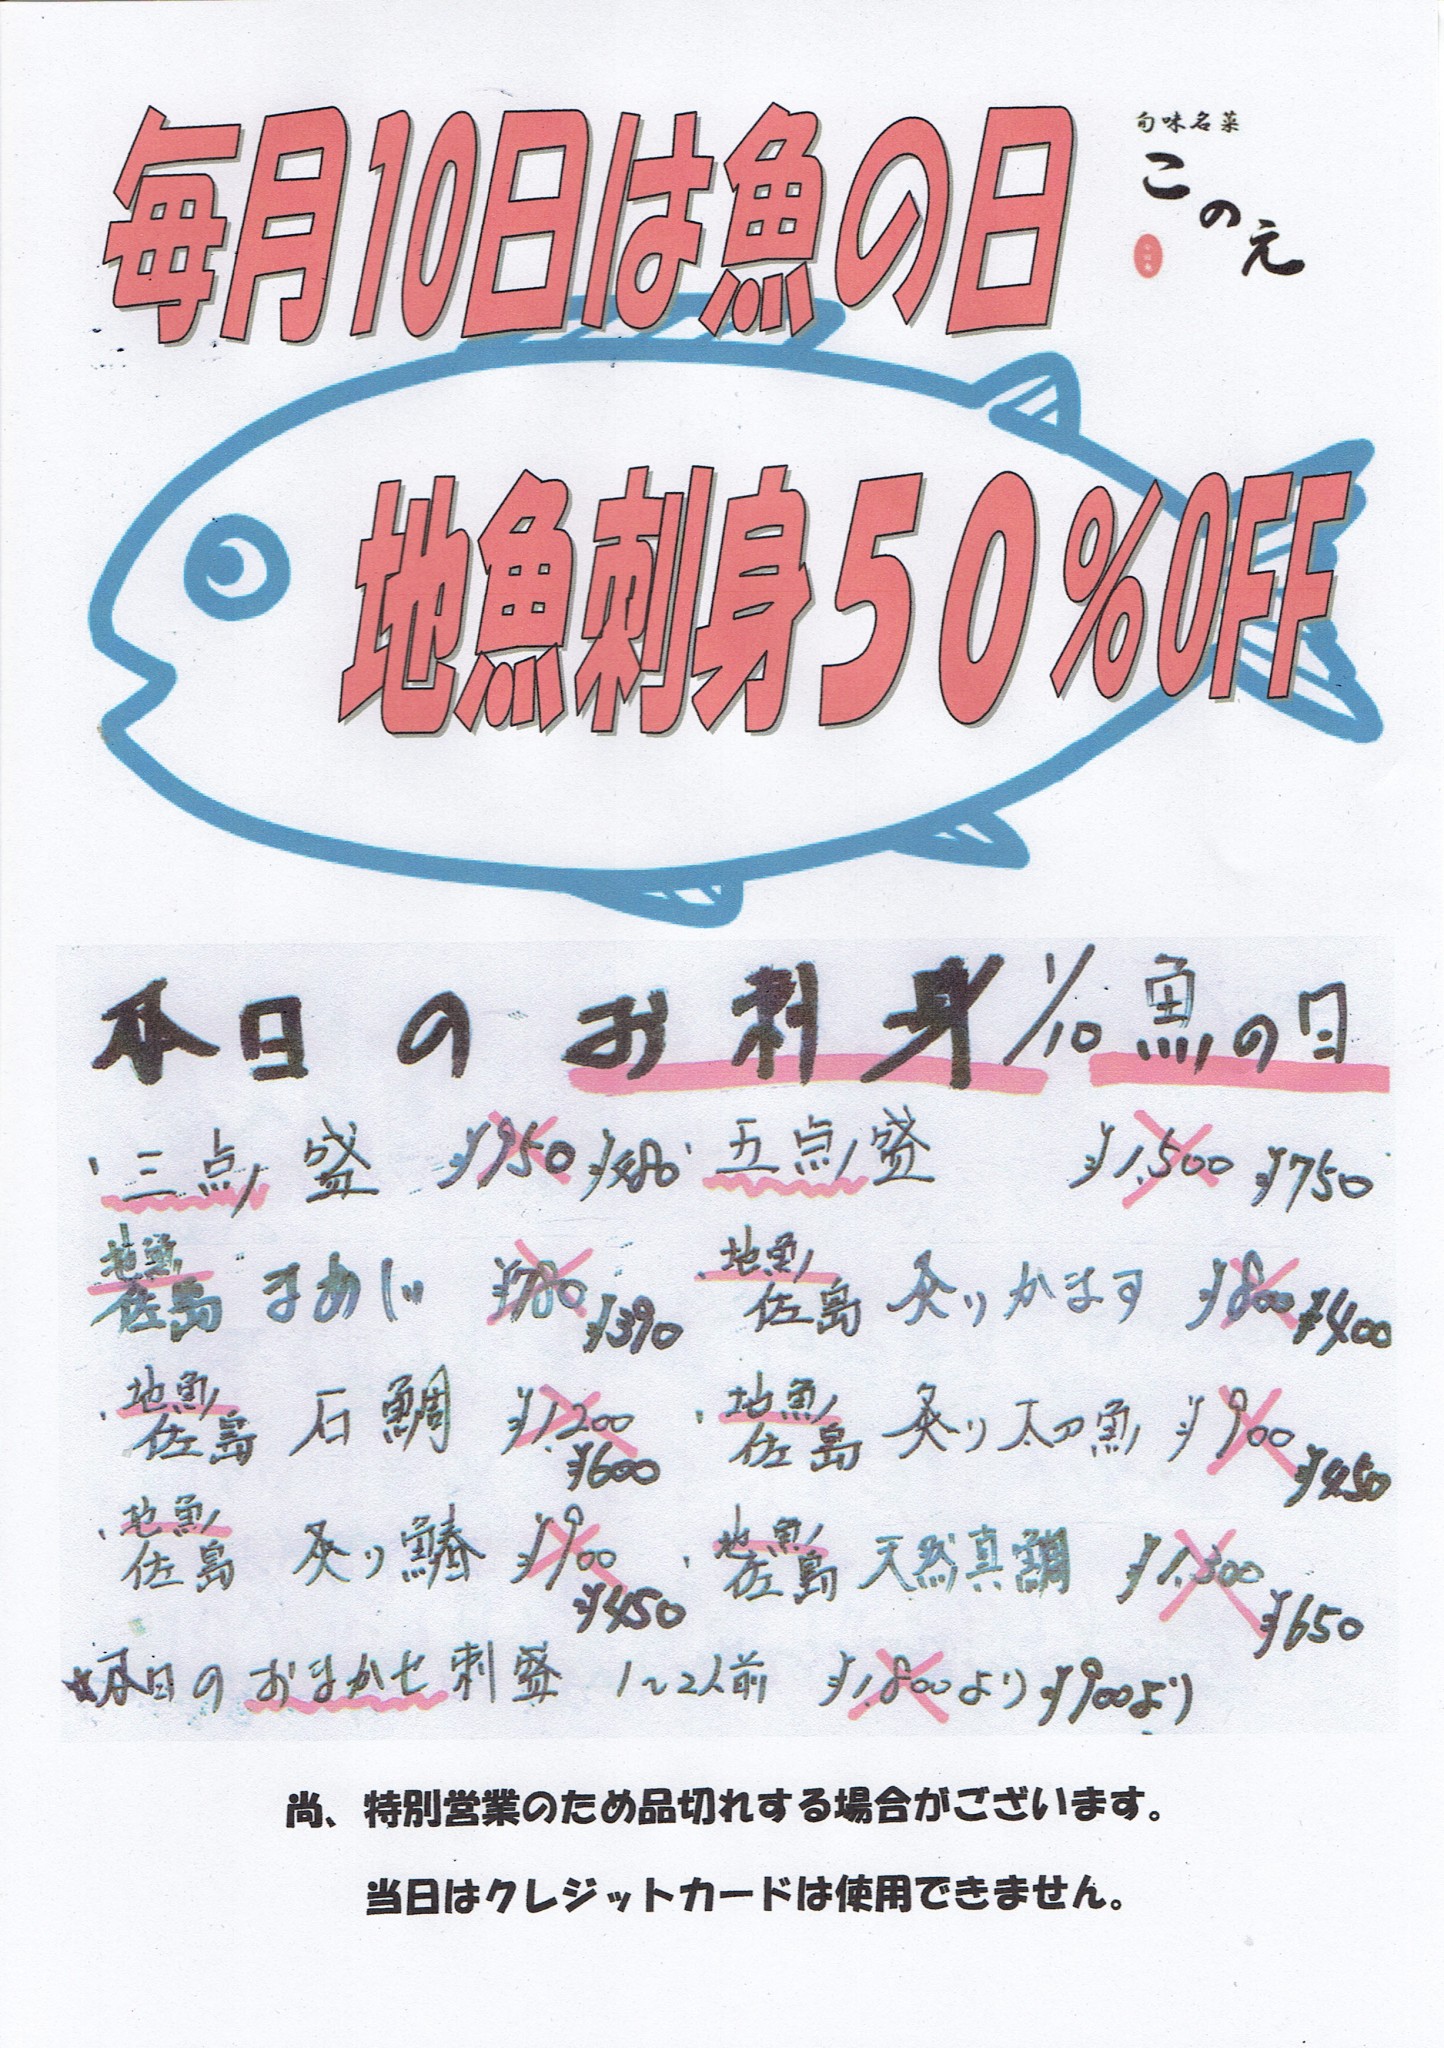 毎月10日は魚の日
旬味名菜
このえ
地魚刺身50%OFF
本日のお刺身 1/10 魚の日
三点盛 ¥950 ¥480
五点盛 ¥1,500 ¥750
地魚 佐島 まあじ ¥780 ¥390
地魚 佐島 炙りかます ¥800 ¥400
地魚 佐島 石鯛 ¥1,200 ¥600
地魚 佐島 炙り太刀魚 ¥900 ¥450
地魚 佐島 炙り鰆 ¥900 ¥450
地魚 佐島 天然真鯛 ¥1,300 ¥650
☆本日のおまかせ刺盛 1〜2人前 ¥1,800より ¥900より
尚、特別営業のため品切れする場合がございます。
当日はクレジットカードは使用できません。